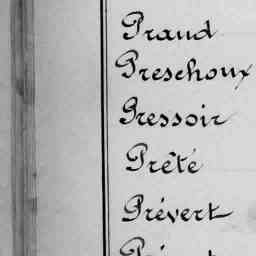 Praud
Preschoux
Pressoir
Prêté
Prévert